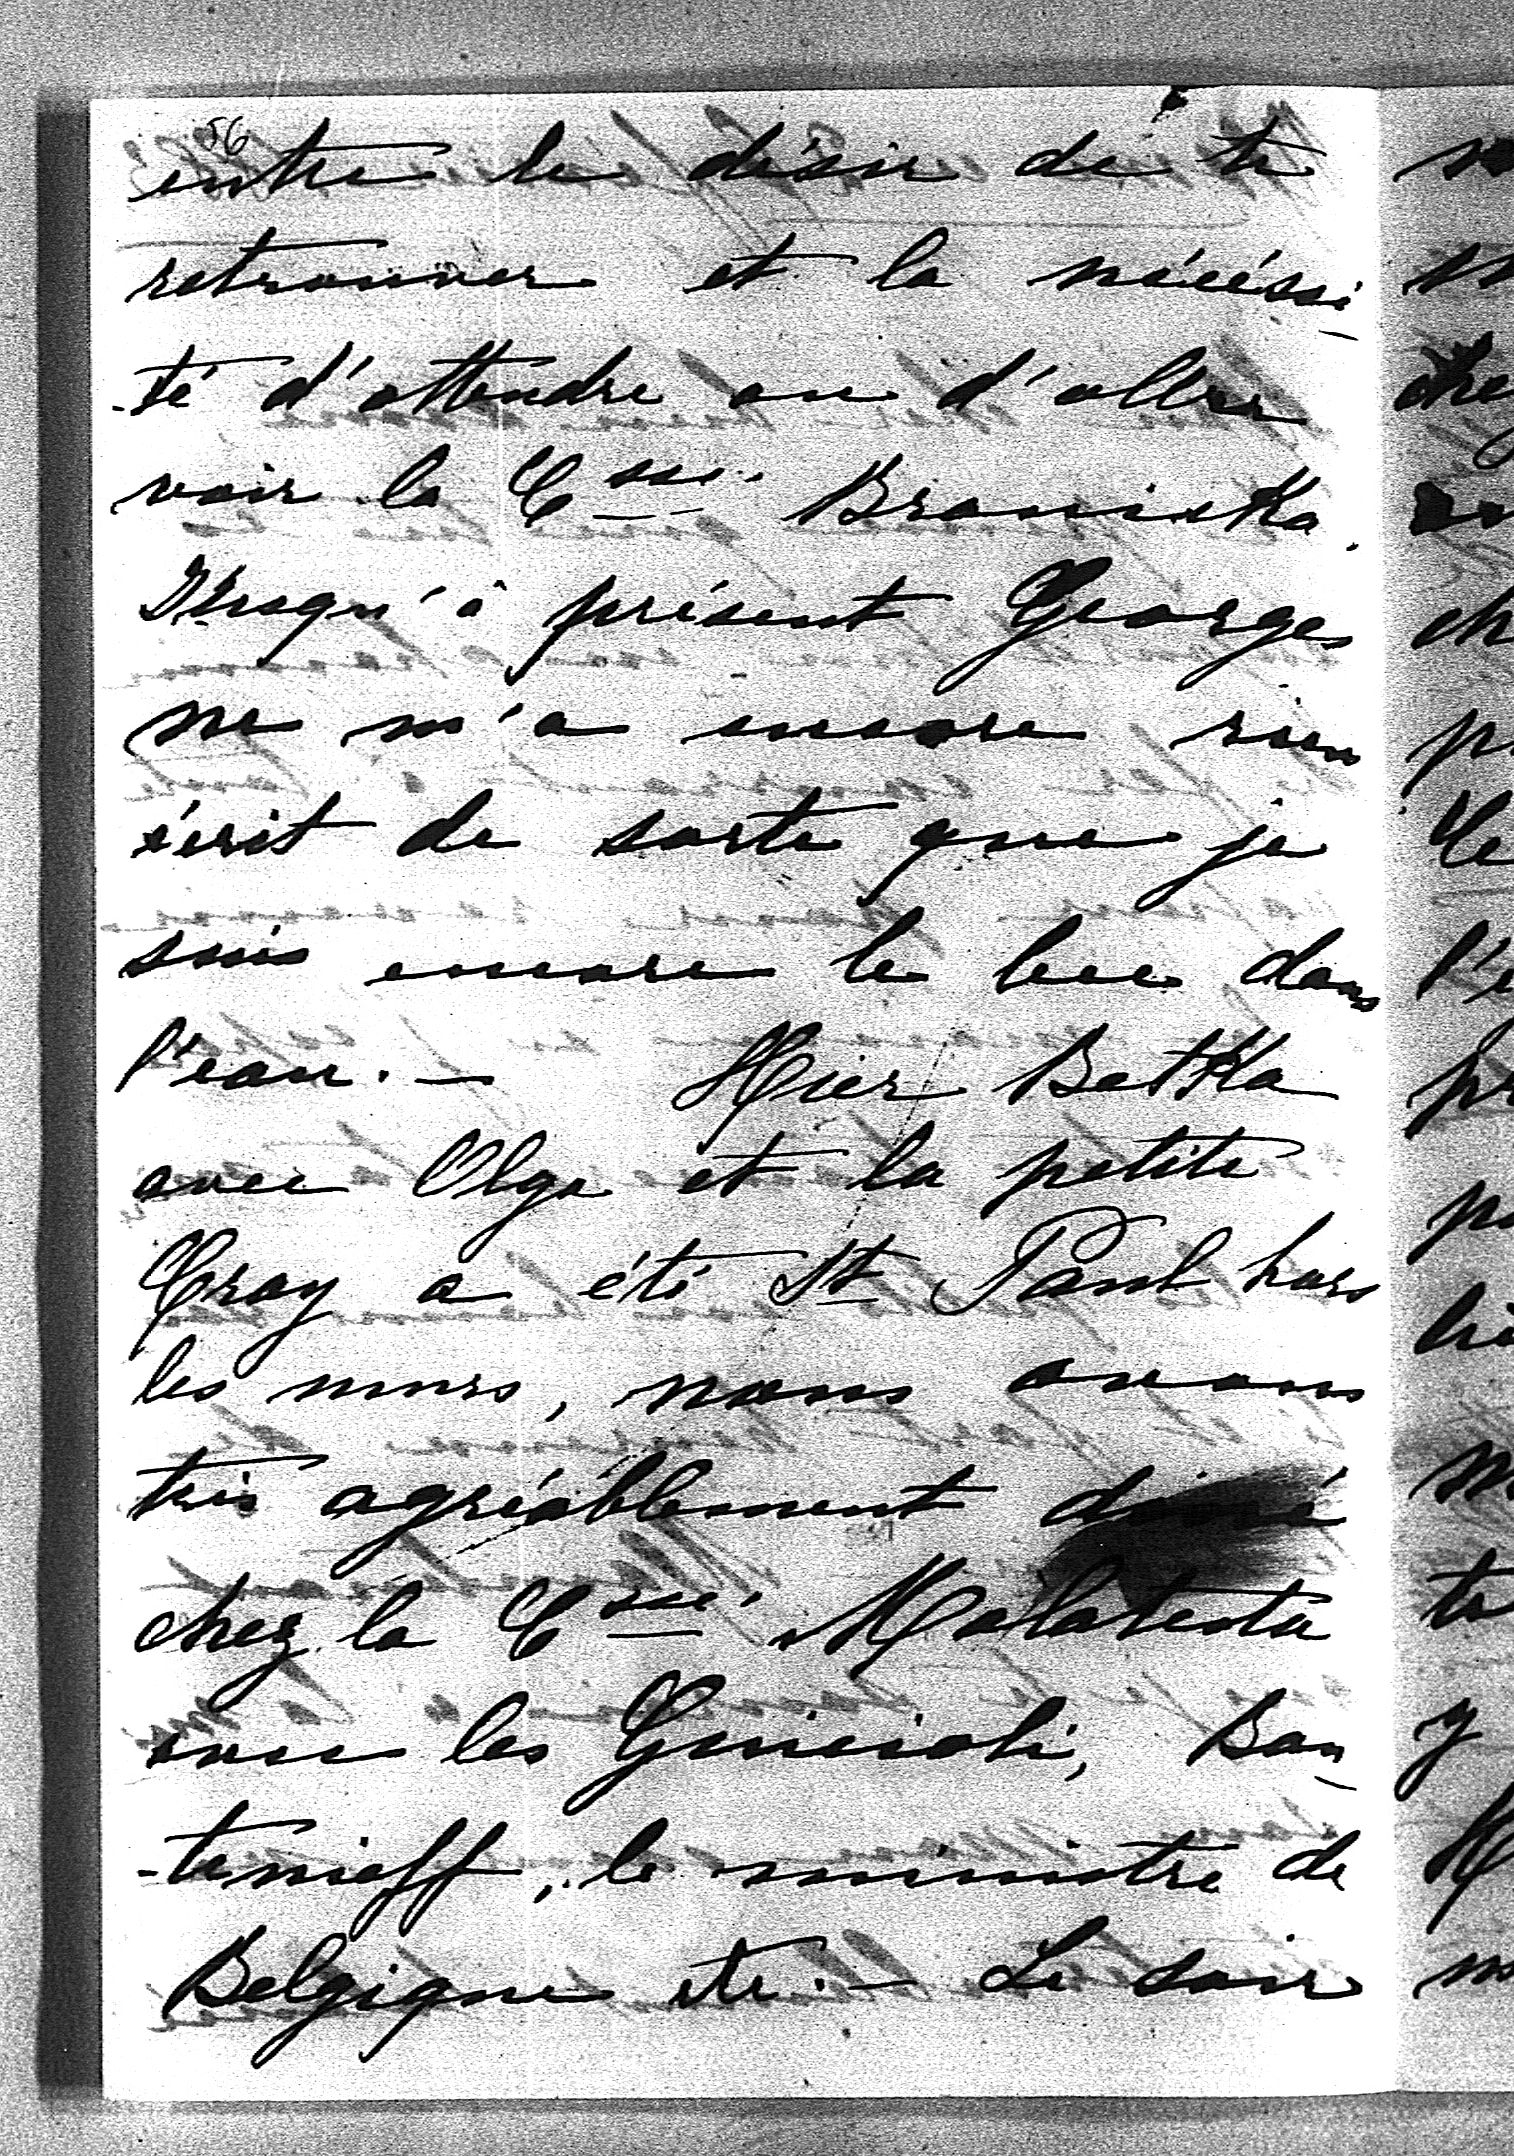 56
entre le désir de te
retrouver et la nécéssi-
-té d'attendre ou d'aller
voir la Csse. Braniska.
Jusqu'à présent Georges
ne m'a encore rien
écrit de sorte que je
suis encore le bec dans
l'eau. — Hier Betka
avec Olga et la petite
Cray a été St Paul hors
les murs, nous avons
très agréablement diné
chez la Csse. Malatesta
avec les Guicioli, Bou-
-tenieff, le ministre de
Belgique etc. — Le soir